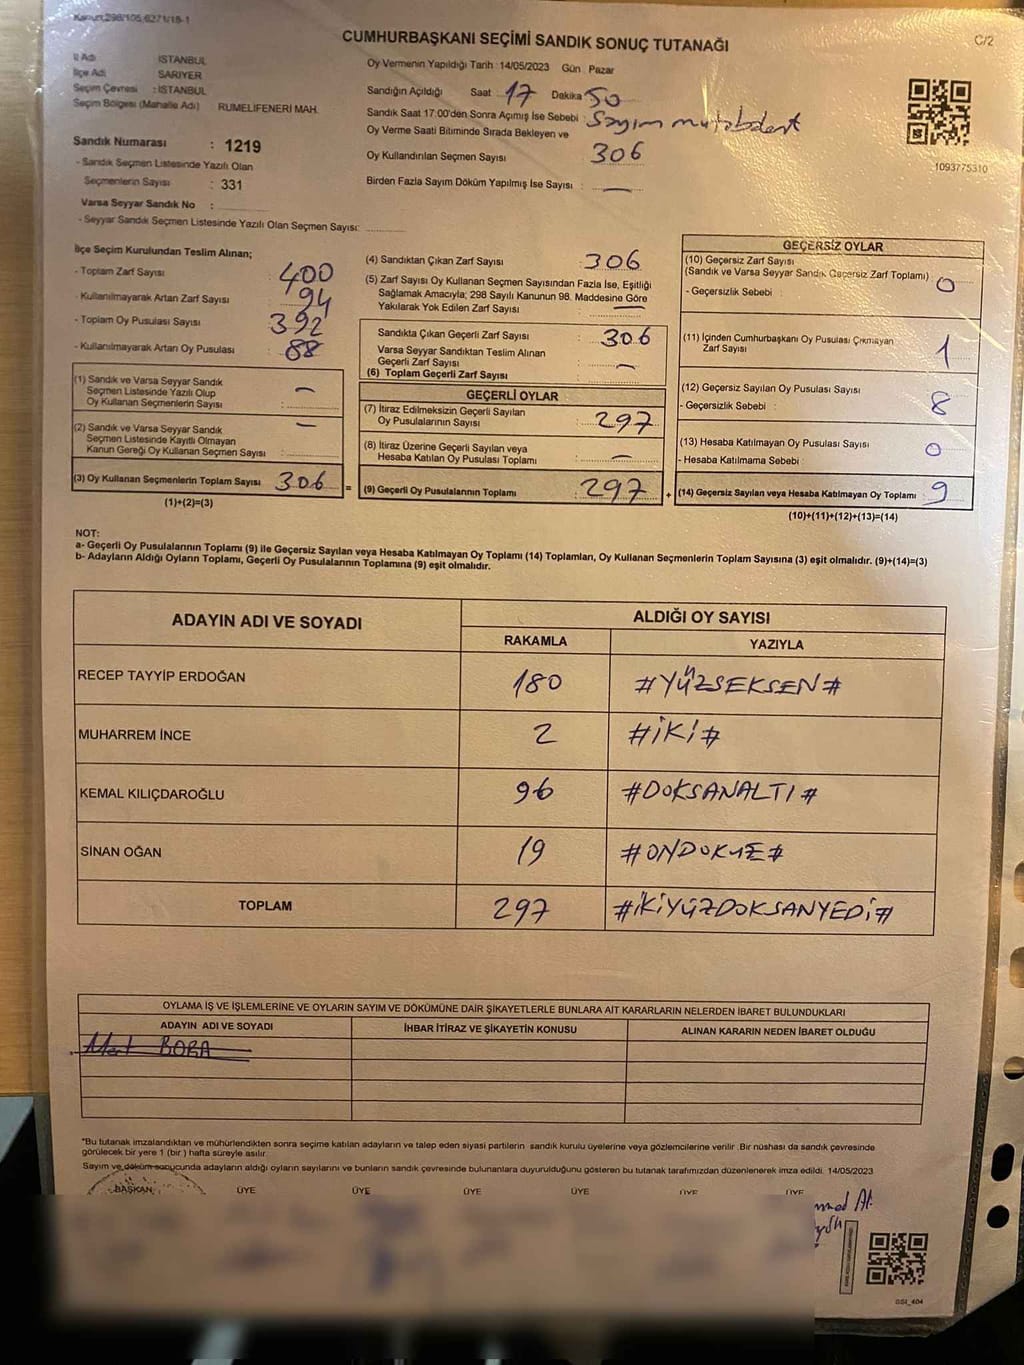 Kanun:298/105,6271/18-1
C/2
CUMHURBAŞKANI SEÇİMİ SANDIK SONUÇ TUTANAĞI
İl Adı : İSTANBUL
İlçe Adı : SARIYER
Seçim Çevresi : İSTANBUL
Seçim Bölgesi (Mahalle Adı) : RUMELİFENERİ MAH.
Sandık Numarası : 1219
- Sandık Seçmen Listesinde Yazılı Olan
Seçmenlerin Sayısı : 331
Varsa Seyyar Sandık No :
- Seyyar Sandık Seçmen Listesinde Yazılı Olan Seçmen Sayısı:
Oy Vermenin Yapıldığı Tarih : 14/05/2023 Gün : Pazar
Sandığın Açıldığı Saat 17 Dakika 50
Sandık Saat 17:00'den Sonra Açımış İse Sebebi : Sayım
Oy Verme Saati Bitiminde Sırada Bekleyen ve
Oy Kullandırılan Seçmen Sayısı 306
Birden Fazla Sayım Döküm Yapılmış İse Sayısı : —
1093775310
İlçe Seçim Kurulundan Teslim Alınan;
- Toplam Zarf Sayısı : 400
- Kullanılmayarak Artan Zarf Sayısı : 94
- Toplam Oy Pusulası Sayısı : 392
- Kullanılmayarak Artan Oy Pusulası : 88
(1) Sandık ve Varsa Seyyar Sandık
Seçmen Listesinde Yazılı Olup
Oy Kullanan Seçmenlerin Sayısı : —
(2) Sandık ve Varsa Seyyar Sandık
Seçmen Listesinde Kayıtlı Olmayan
Kanun Gereği Oy Kullanan Seçmen Sayısı : —
(3) Oy Kullanan Seçmenlerin Toplam Sayısı : 306 =
(1)+(2)=(3)
(4) Sandıktan Çıkan Zarf Sayısı : 306
(5) Zarf Sayısı Oy Kullanan Seçmen Sayısından Fazla İse, Eşitliği
Sağlamak Amacıyla; 298 Sayılı Kanunun 98. Maddesine Göre
Yakılarak Yok Edilen Zarf Sayısı : —
Sandıkta Çıkan Geçerli Zarf Sayısı : 306
Varsa Seyyar Sandıktan Teslim Alınan
Geçerli Zarf Sayısı : —
(6) Toplam Geçerli Zarf Sayısı :
GEÇERLİ OYLAR
(7) İtiraz Edilmeksizin Geçerli Sayılan
Oy Pusulalarının Sayısı : 297
(8) İtiraz Üzerine Geçerli Sayılan veya
Hesaba Katılan Oy Pusulası Toplamı : —
(9) Geçerli Oy Pusulalarının Toplamı : 297 +
GEÇERSİZ OYLAR
(10) Geçersiz Zarf Sayısı
(Sandık ve Varsa Seyyar Sandık Geçersiz Zarf Toplamı) : 0
- Geçersizlik Sebebi :
(11) İçinden Cumhurbaşkanı Oy Pusulası Çıkmayan
Zarf Sayısı 1
(12) Geçersiz Sayılan Oy Pusulası Sayısı : 8
- Geçersizlik Sebebi :
(13) Hesaba Katılmayan Oy Pusulası Sayısı : 0
- Hesaba Katılmama Sebebi :
(14) Geçersiz Sayılan veya Hesaba Katılmayan Oy Toplamı : 9
(10)+(11)+(12)+(13)=(14)
NOT:
a- Geçerli Oy Pusulalarının Toplamı (9) ile Geçersiz Sayılan veya Hesaba Katılmayan Oy Toplamı (14) Toplamları, Oy Kullanan Seçmenlerin Toplam Sayısına (3) eşit olmalıdır. (9)+(14)=(3)
b- Adayların Aldığı Oyların Toplamı, Geçerli Oy Pusulalarının Toplamına (9) eşit olmalıdır.
ADAYIN ADI VE SOYADI
ALDIĞI OY SAYISI
RAKAMLA YAZIYLA
RECEP TAYYİP ERDOĞAN 180 #YÜZSEKSEN#
MUHARREM İNCE 2 #İKİ#
KEMAL KILIÇDAROĞLU 96 #DOKSANALTI#
SİNAN OĞAN 19 #ONDOKUZ#
TOPLAM 297 #İKİYÜZDOKSANYEDİ#
OYLAMA İŞ VE İŞLEMLERİNE VE OYLARIN SAYIM VE DÖKÜMÜNE DAİR ŞİKAYETLERLE BUNLARA AİT KARARLARIN NELERDEN İBARET BULUNDUKLARI
ADAYIN ADI VE SOYADI İHBAR İTİRAZ VE ŞİKAYETİN KONUSU ALINAN KARARIN NEDEN İBARET OLDUĞU
Mert BORA
*Bu tutanak imzalandıktan ve mühürlendikten sonra seçime katılan adayların ve talep eden siyasi partilerin sandık kurulu üyelerine veya gözlemcilerine verilir .Bir nüshası da sandık çevresinde
görülecek bir yere 1 (bir ) hafta süreyle asılır.
Sayım ve döküm sonucunda adayların aldığı oyların sayılarını ve bunların sandık çevresinde bulunanlara duyurulduğunu gösteren bu tutanak tarafımızdan düzenlenerek imza edildi. 14/05/2023
BAŞKAN ÜYE ÜYE ÜYE ÜYE ÜYE ÜYE
GSI_404